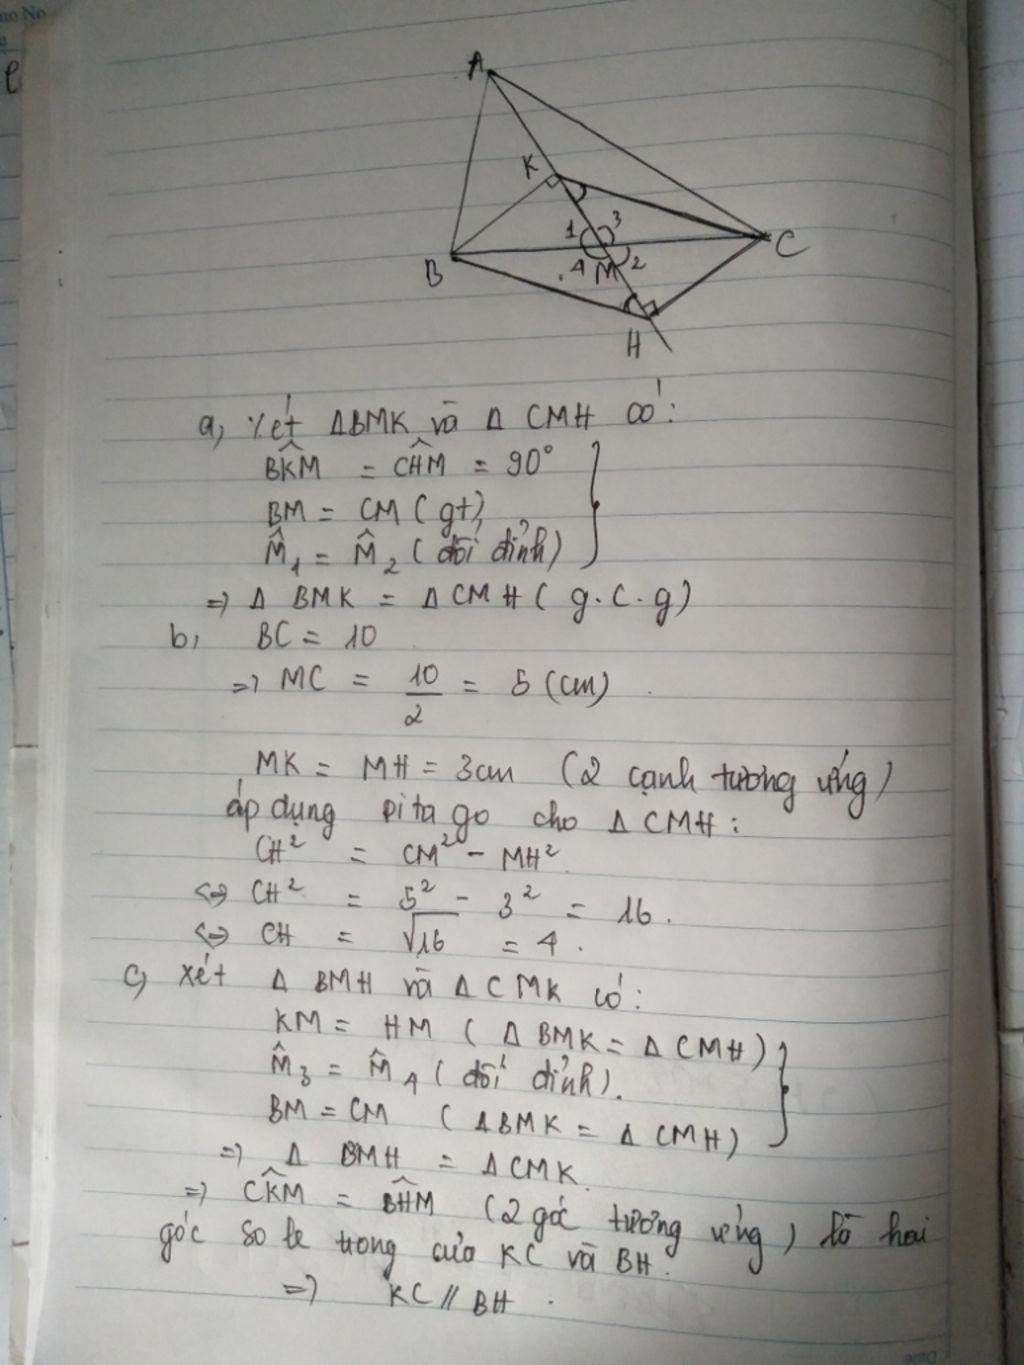 A
K
1 3
C
B
4 M 2
H
a, Xét ΔBMK và Δ CMH có:
BK̂M = CĤM = 90°
BM = CM ( gt)
M̂₁ = M̂₂ ( đối đỉnh)
=> Δ BMK = Δ CMH ( g.c.g)
b, BC = 10
=> MC = 10/2 = 5 (cm)
MK = MH = 3cm (2 cạnh tương ứng)
áp dụng pitago cho Δ CMH :
CH² = CM² - MH²
<=> CH² = 5² - 3² = 16.
<=> CH = √16 = 4.
c, xét Δ BMH và Δ CMK có:
KM = HM ( Δ BMK = Δ CMH)
M̂₃ = M̂₄ ( đối đỉnh).
BM = CM ( ΔBMK = Δ CMH)
=> Δ BMH = Δ CMK.
=> CK̂M = BĤM (2 góc tương ứng) là hai
góc so le trong của KC và BH.
=> KC // BH.